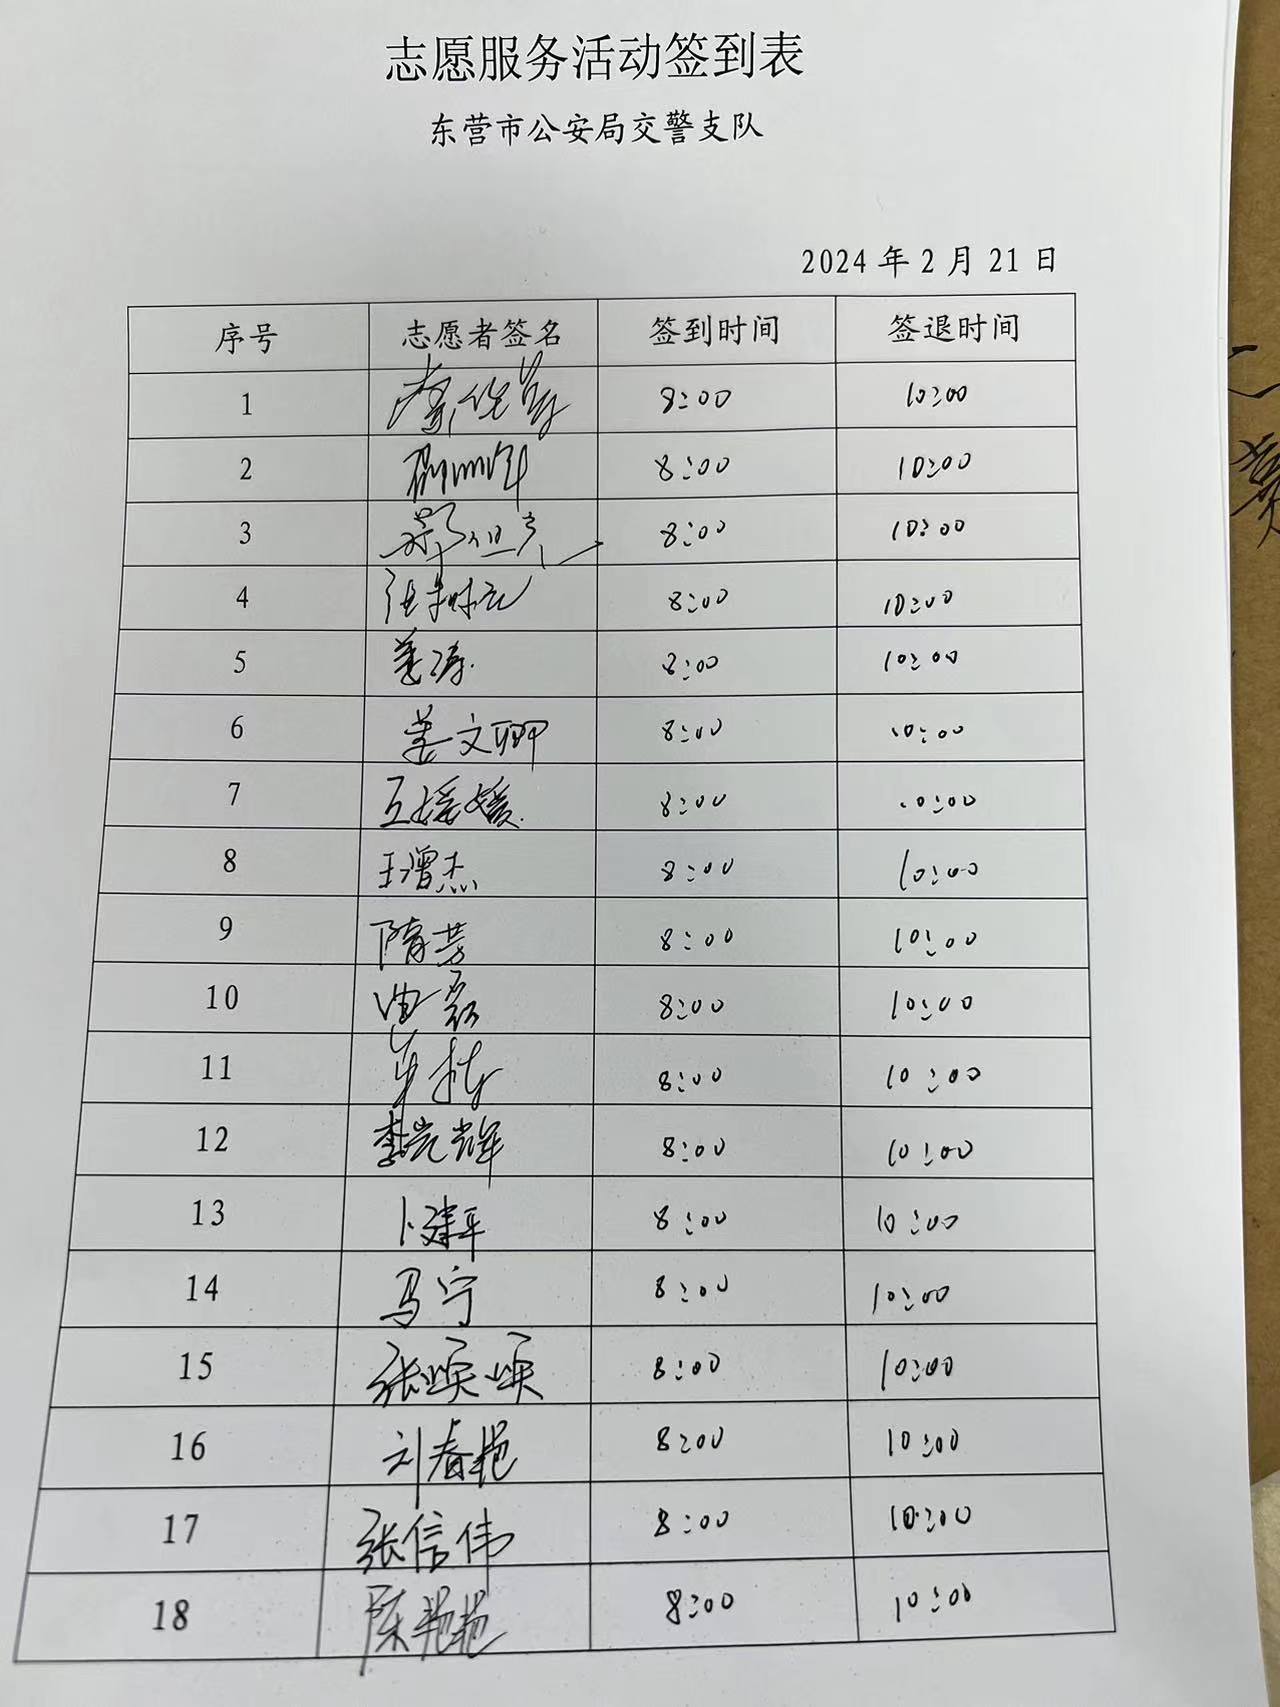 志愿服务活动签到表
东营市公安局交警支队
2024年2月21日
序号 志愿者签名 签到时间 签退时间
1 8:00 10:00
2 8:00 10:00
3 8:00 10:00
4 8:00 10:00
5 姜涛 8:00 10:00
6 姜文卿 8:00 10:00
7 王媛媛 8:00 10:00
8 王增杰 8:00 10:00
9 隋芳 8:00 10:00
10 曲磊 8:00 10:00
11 8:00 10:00
12 李光辉 8:00 10:00
13 卜建平 8:00 10:00
14 马宁 8:00 10:00
15 张焕焕 8:00 10:00
16 刘春艳 8:00 10:00
17 张信伟 8:00 10:00
18 陈艳艳 8:00 10:00